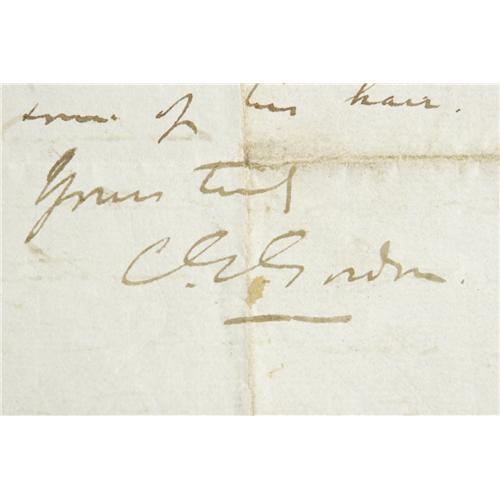 some of his hair.
Yours truly
C. G. Gordon.